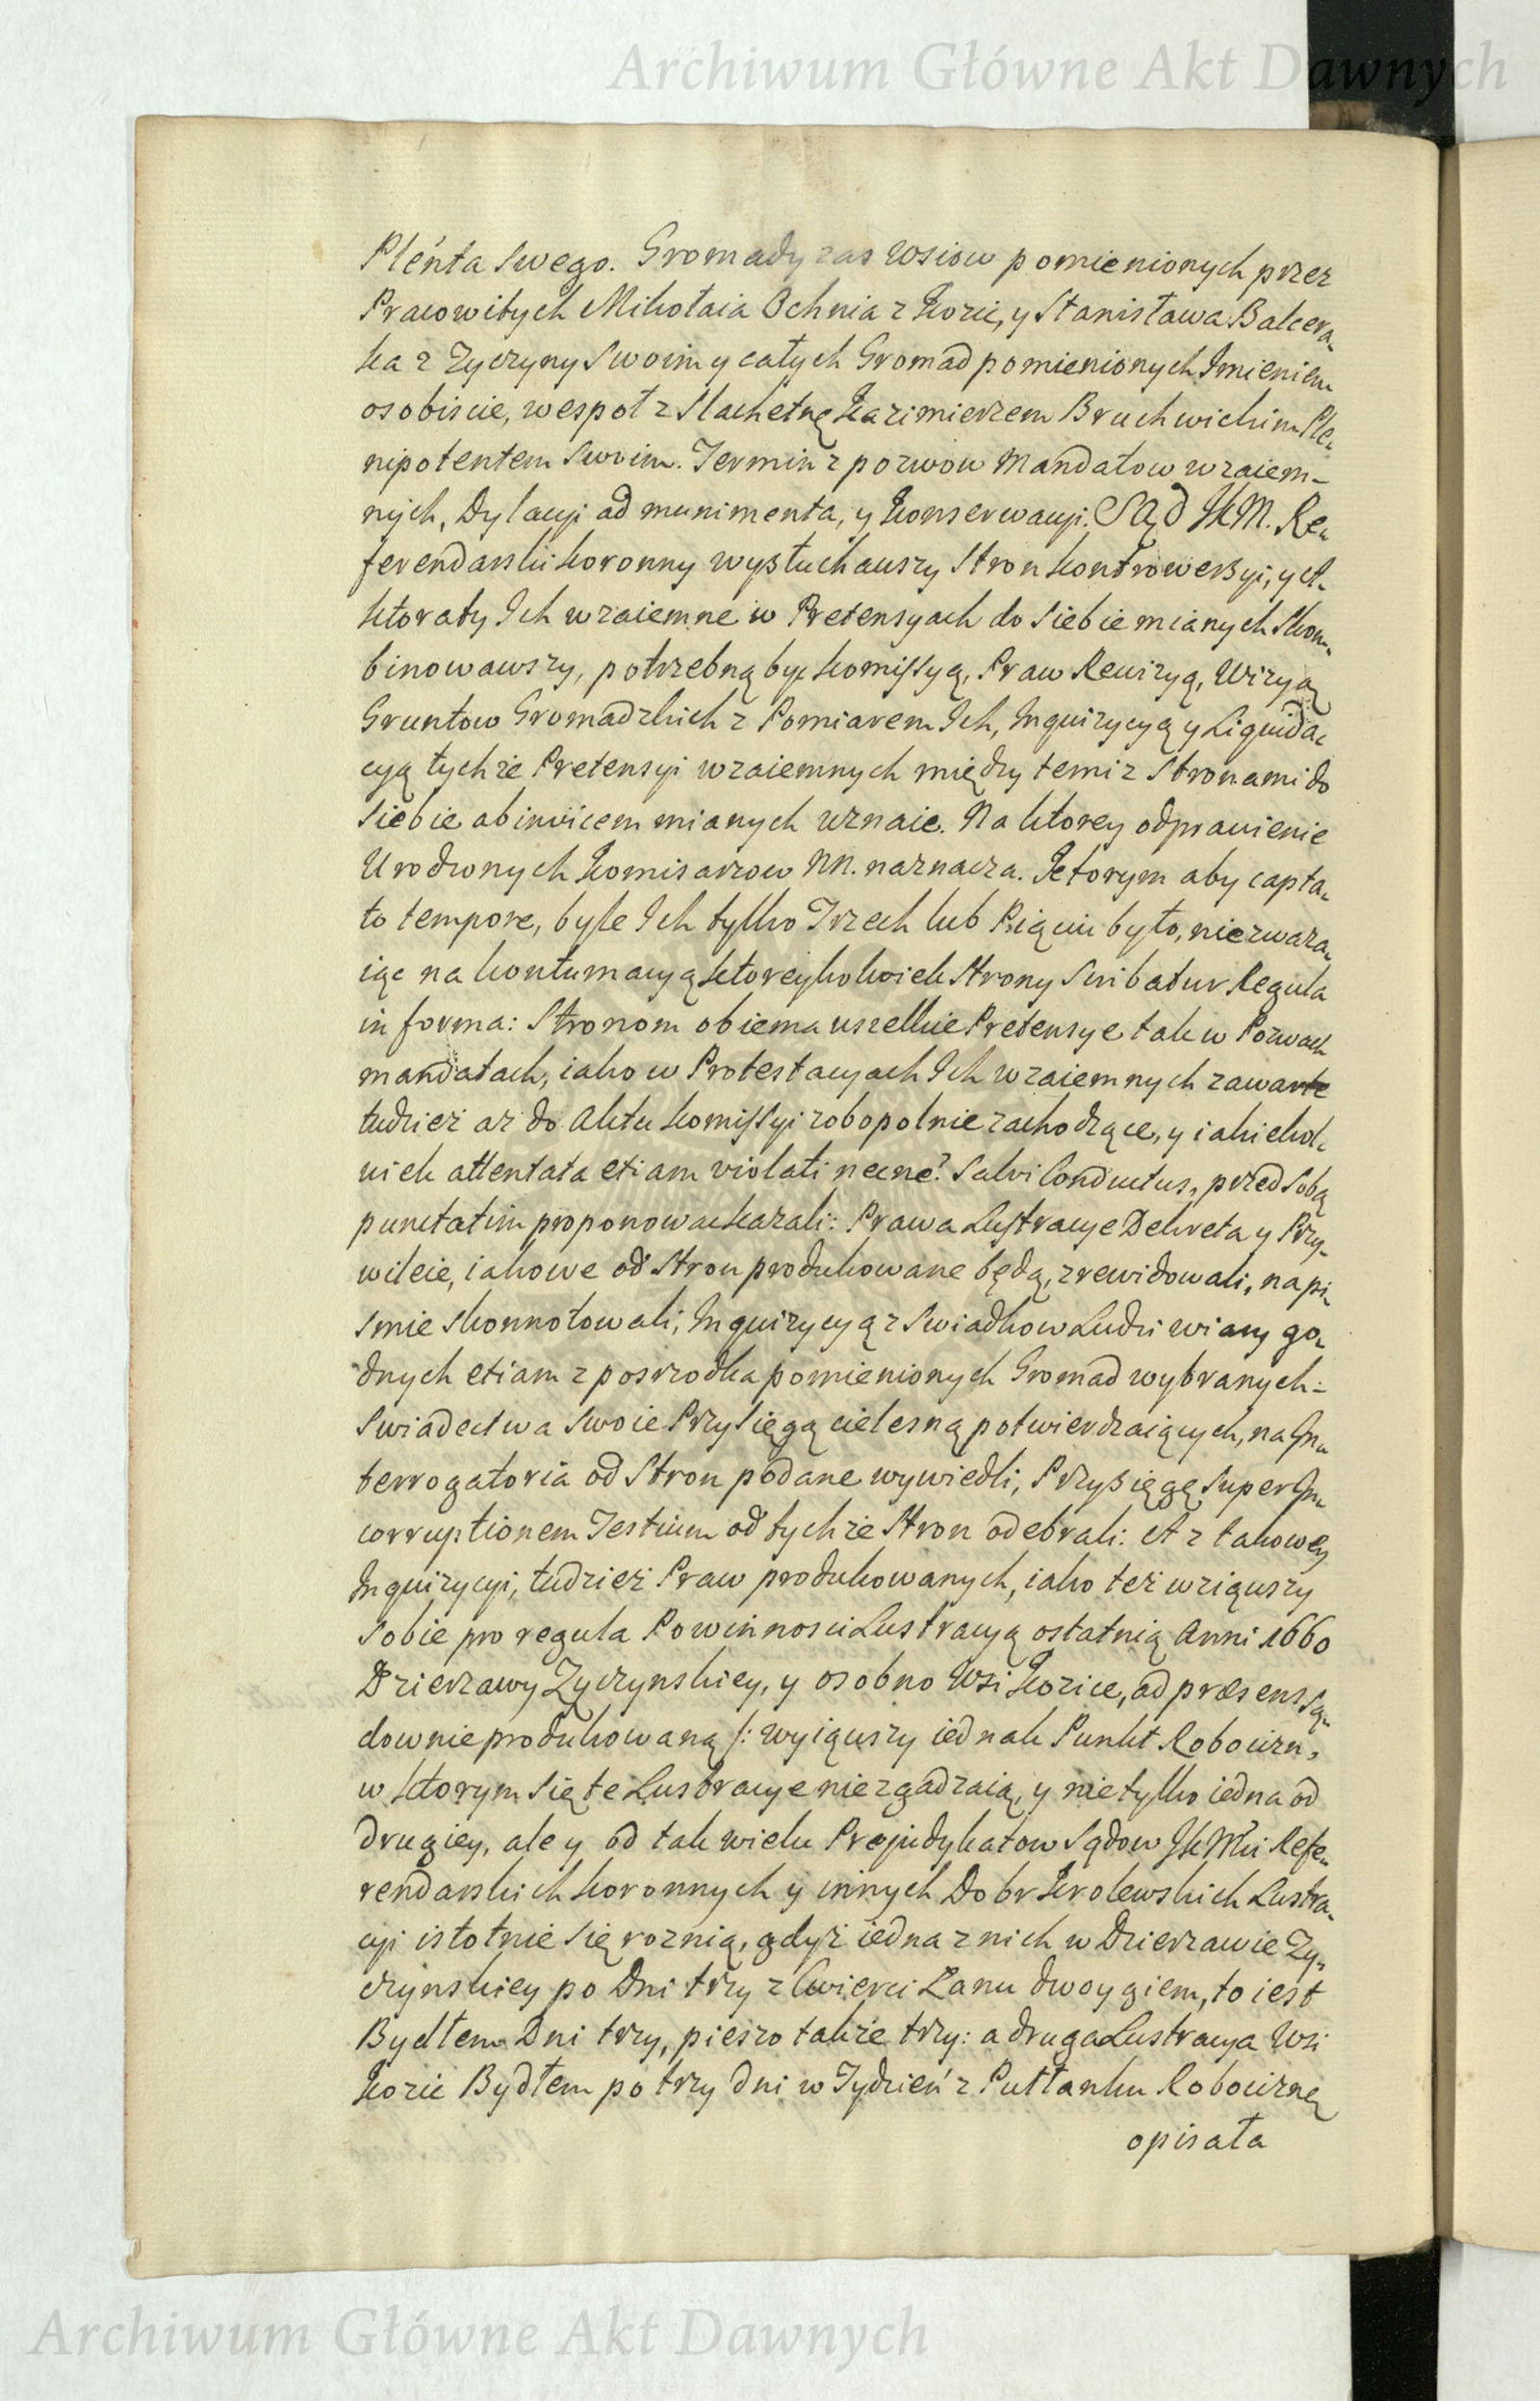 Archiwum Główne Akt Dawnych
Pleńta Swego. Gromady zas Wsiow pomienionych przez
Pracowitych Mikołaia Ochnia z Kozic, y Stanisława Balcera-
ka z Zyczyny Swoim y całych Gromad pomienionych Imieniem
osobiscie, wespoł z Slachetnę Kazimierzem Bruchwickim Ple-
nipotentem Swoim. Termin z pozwow Mandatow wzaiem-
nych, Dylacyi ad munimenta, y Konserwacyi. Sąd JKM. Re-
ferendarski koronny wysłuchauszy Stron kontrowersyi, y A-
ktoraty Ich wzaiemne w Pretensyach do Siebie mianych Skom-
binowawszy, potrzebną byc komissyą, Praw Rewizyą, Wizyą
Gruntow Gromadzkich z Pomiarem Ich, Inquizycyą y Liquida-
cyą tychże Pretensyi wzaiemnych między temiz Stronami do
Siebie abinvicem mianych uznaie. Na ktorey odprawienie
Urodzonych Komisarzow NN. naznacza. Ktorym aby capta-
to tempore, byle Ich tylko Trzech lub Pięciu było, niezwaza-
iąc na kontumacyą ktoreykolwiek Strony Scribatur Regula
in forma: Stronom obiema wszelkie Pretensye tak w Pozwach
mandatach, iako w Protestacyach Ich wzaiemnych zawarte
tudzież aż do Aktu komissyi zobopolnie zachodzące, y iakiekol-
wiek attentata etiam violati necne? Salvi Conductus, przed Sobą
punctatim proponowac kazali: Prawa Lustracye Dekreta y Przy-
wileie, iakowe od Stron produkowane będą, zrewidowali, na pi-
smie skonnotowali, Inquizycyą z Swiadkow Ludzi wiary go-
dnych etiam z posrzodka pomienionych Gromad wybranych-
Swiadectwa Swoie Przysięgą cielesną potwierdzaiących, na In-
terrogatoria od Stron podane wywiedli, Przysięgę Super In-
corruptionem Testium od tychże Stron odebrali: A z takowey
Inquizycyi, tudzież Praw produkowanych, iako też wziąwszy
Sobie pro regula Powinnosci Lustracyą ostatnią Anni 1660
Dzierzawy Zyczynskiey, y osobno Wsi Kozice, ad præsens Są-
downie produkowaną /: wyiąwszy iednak Punkt Robocizn,
w ktorym się te Lustracye niezgadzaią, y nie tylko iedna od
drugiey, ale y od tak wielu Prejudykatow Sądow JKMci Refe-
rendarskich koronnych y innych Dobr Krolewskich Lustra-
cyi istotnie się roznią, gdyż iedna z nich w Dzierzawie Zy-
czynskiey po Dni trzy z Cwierci Łanu dwoygiem, to iest
Bydłem Dni trzy, pieszo także trzy: a druga Lustracya Wsi
Kozic Bydłem po trzy dni w Tydzień z Pułłanku Robociznę
opisała
Archiwum Główne Akt Dawnych